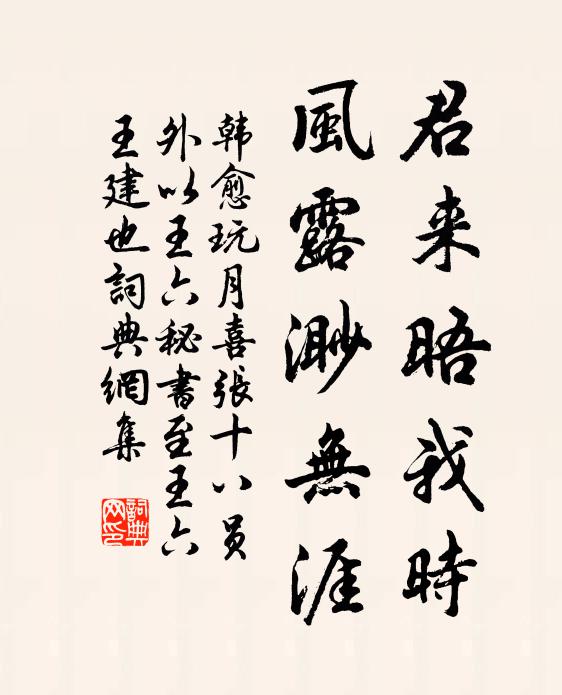 君来晤我時
風露渺無涯
韩愈玩月喜張十八员
外以王六秘書至王六
王建也詞典網集
詞典网印